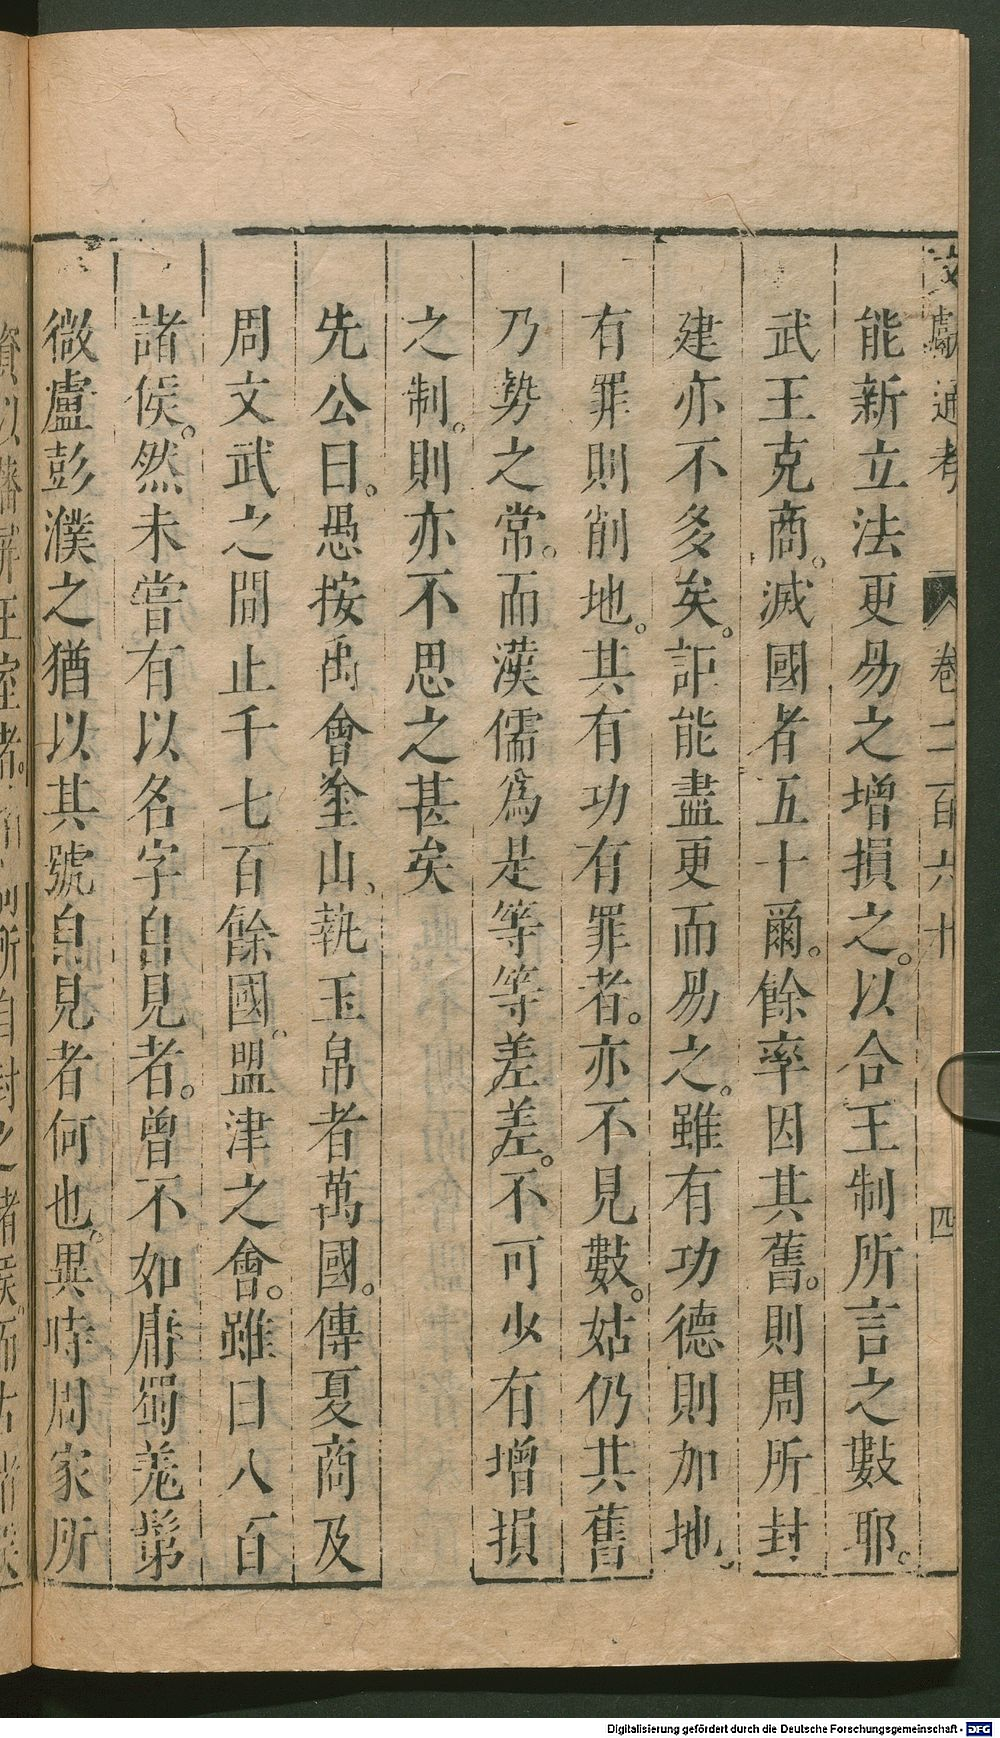 文獻通考 卷二百六十 四
能新立法更易之增損之。以合王制所言之數耶。
武王克商。滅國者五十爾。餘率因其舊。則周所封
建亦不多矣。詎能盡更而易之。雖有功德則加地、
有罪則削地。其有功有罪者。亦不見數。姑仍其舊
乃勢之常。而漢儒為是等等差差。不可少有增損
之制。則亦不思之甚矣
先公曰。愚按禹會塗山、執玉帛者萬國。傳夏商及
周文武之間止千七百餘國。盟津之會。雖曰八百
諸侯。然未嘗有以名字自見者。曾不如庸蜀羌髳
微盧彭濮之猶以其號自見者何也。異時周家所
資以藩屏王室者。所封之諸侯。而古
Digitalisierung gefördert durch die Deutsche Forschungsgemeinschaft - DFG